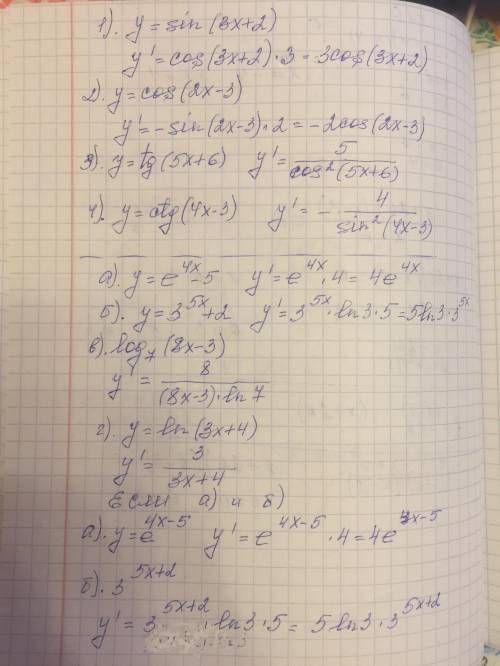 1). y = sin(3x+2)
y' = cos(3x+2)·3 = 3cos(3x+2)
2). y = cos(2x-3)
y' = -sin(2x-3)·2 = -2cos(2x-3)
3). y = tg(5x+6) y' = 5/cos²(5x+6)
4). y = ctg(4x-3) y' = - 4/sin²(4x-3)
а). y = e^4x - 5 y' = e^4x · 4 = 4e^4x
б). y = 3^5x + 2 y' = 3^5x · ln3·5 = 5ln3·3^5x
в). log₇(8x-3)
y' = 8/((8x-3)·ln7)
г). y = ln(3x+4)
y' = 3/(3x+4)
Если а) и б)
а). y = e^4x-5 y' = e^4x-5 · 4 = 4e^3x-5
б). 3^5x+2
y' = 3^5x+2 · ln3·5 = 5ln3·3^5x+2